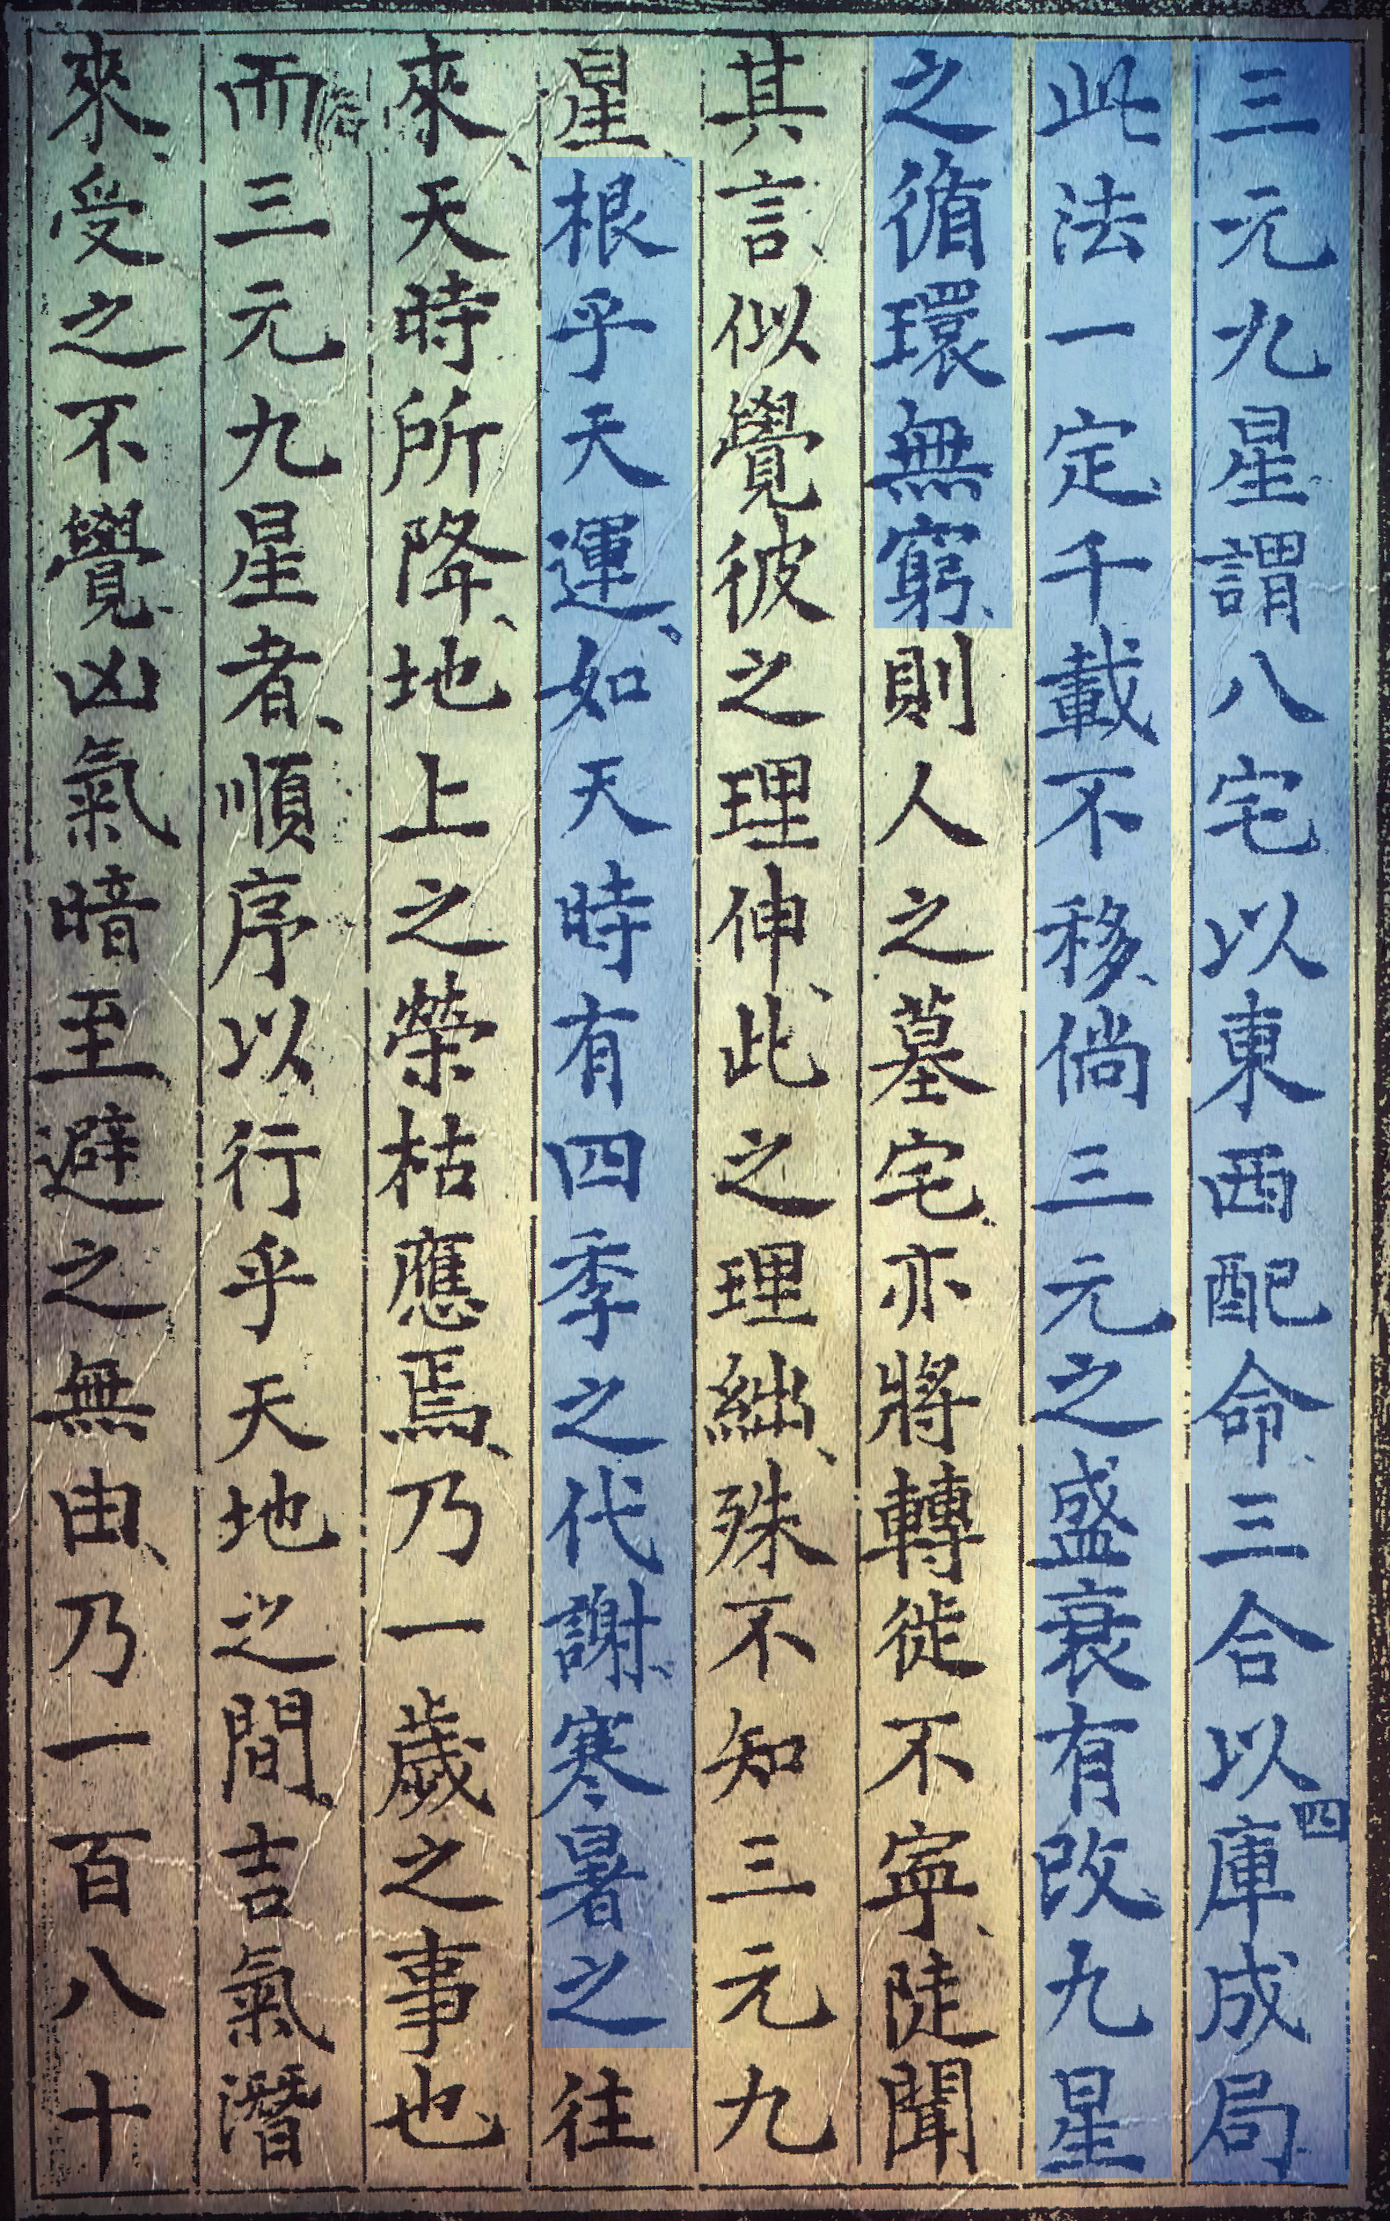 三元九星謂八宅以東西配命、三合以四庫成局、
此法一定、千載不移、倘三元之盛衰有改、九星
之循環無窮、則人之墓宅、亦將轉徙不寧、陡聞
其言、似覺彼之理伸、此之理絀、殊不知三元九
星、根乎天運、如天時有四季之代謝、寒暑之往
來、天時所降、地上之榮枯應焉、乃一歲之事也、
而三元九星者、順序以行乎天地之間。吉氣潛
來、受之不覺、凶氣暗至、避之無由、乃一百八十